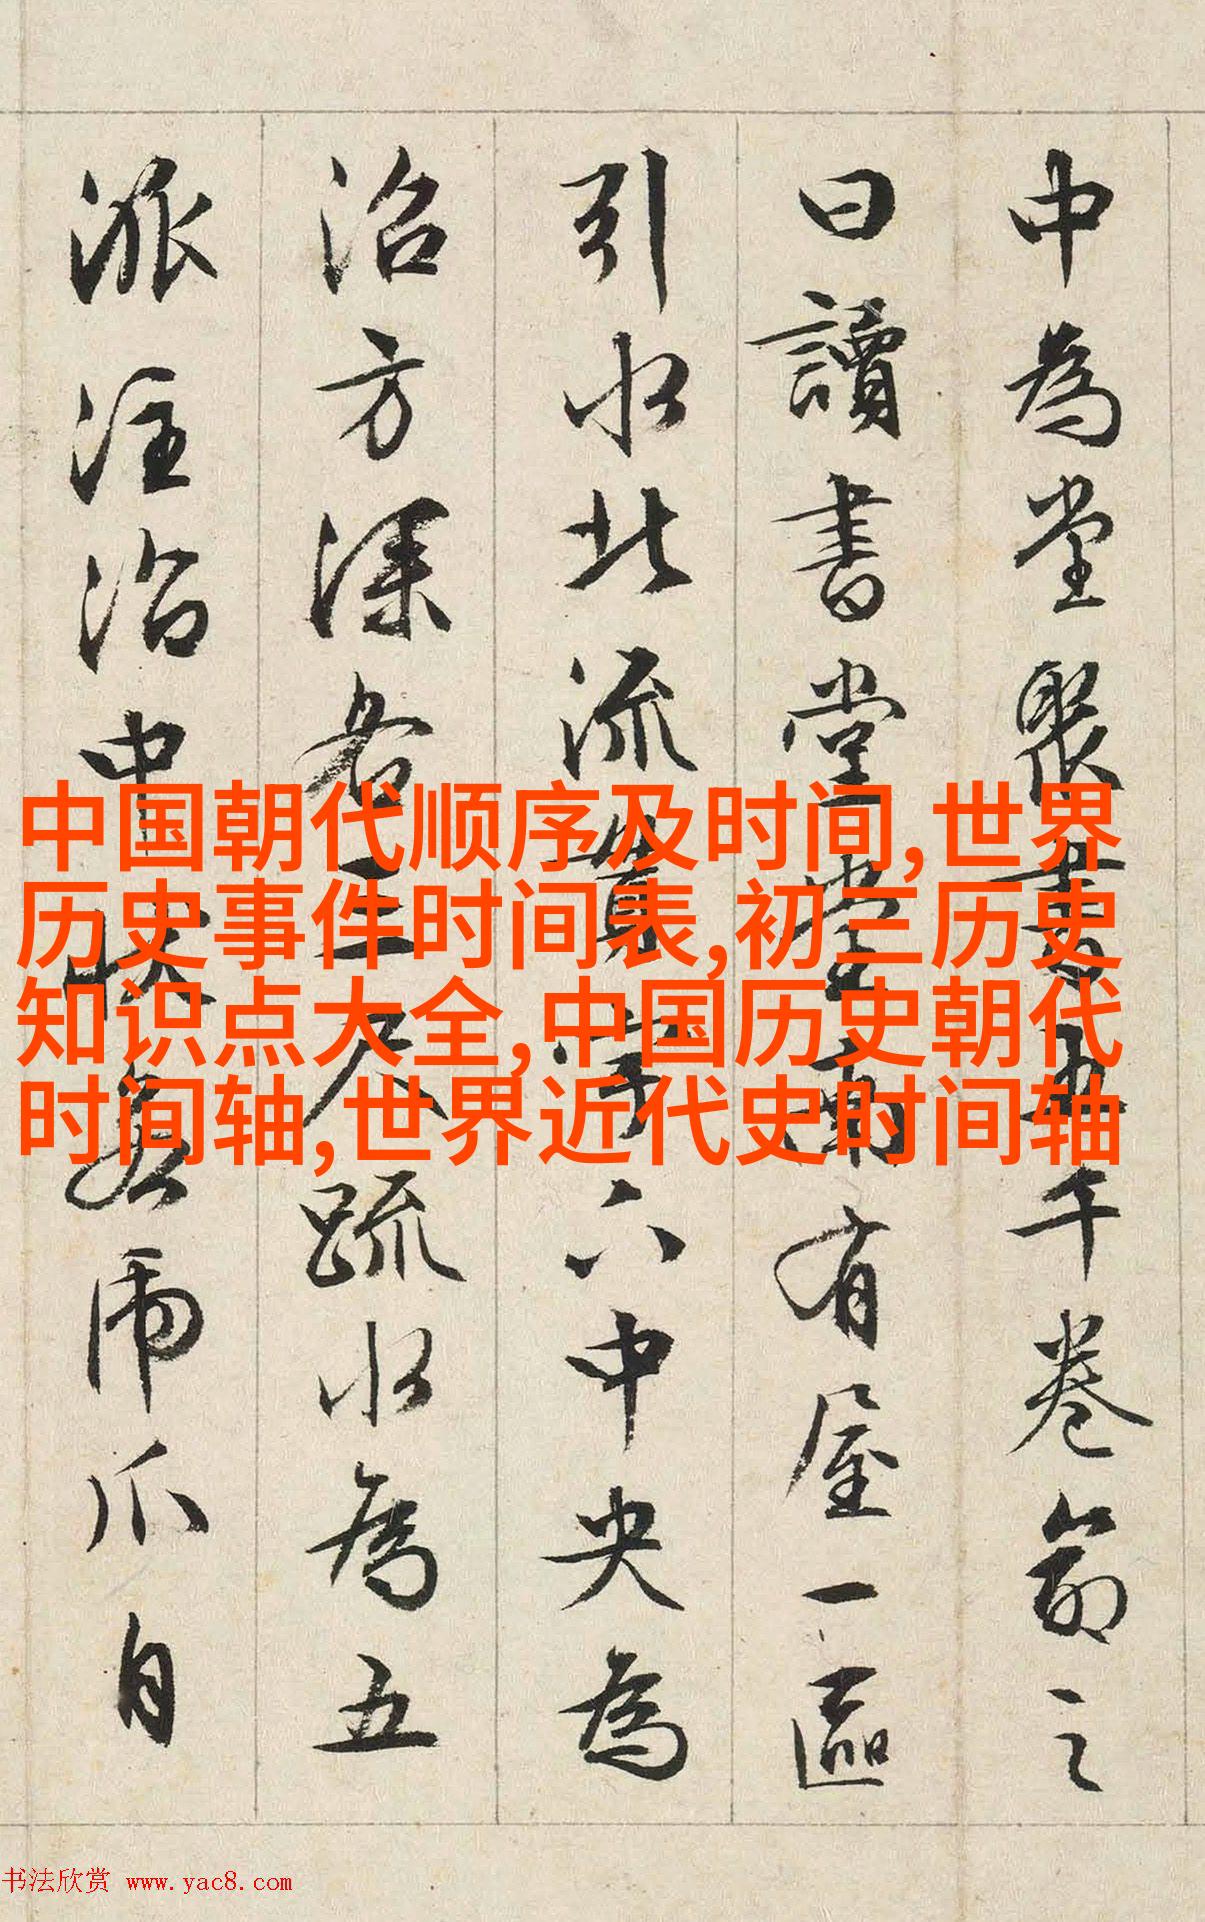 中為堂聚書五千卷命之
曰讀書堂堂南有屋一區
引水北流貫宇下中央為
沼方深各三尺疏水為五
派注沼中狀若虎爪自
中国朝代顺序及时间,世界
历史事件时间表,初三历史
知识点大全,中国历史朝代
时间轴,世界近代史时间轴
书法欣赏 www.yac8.com